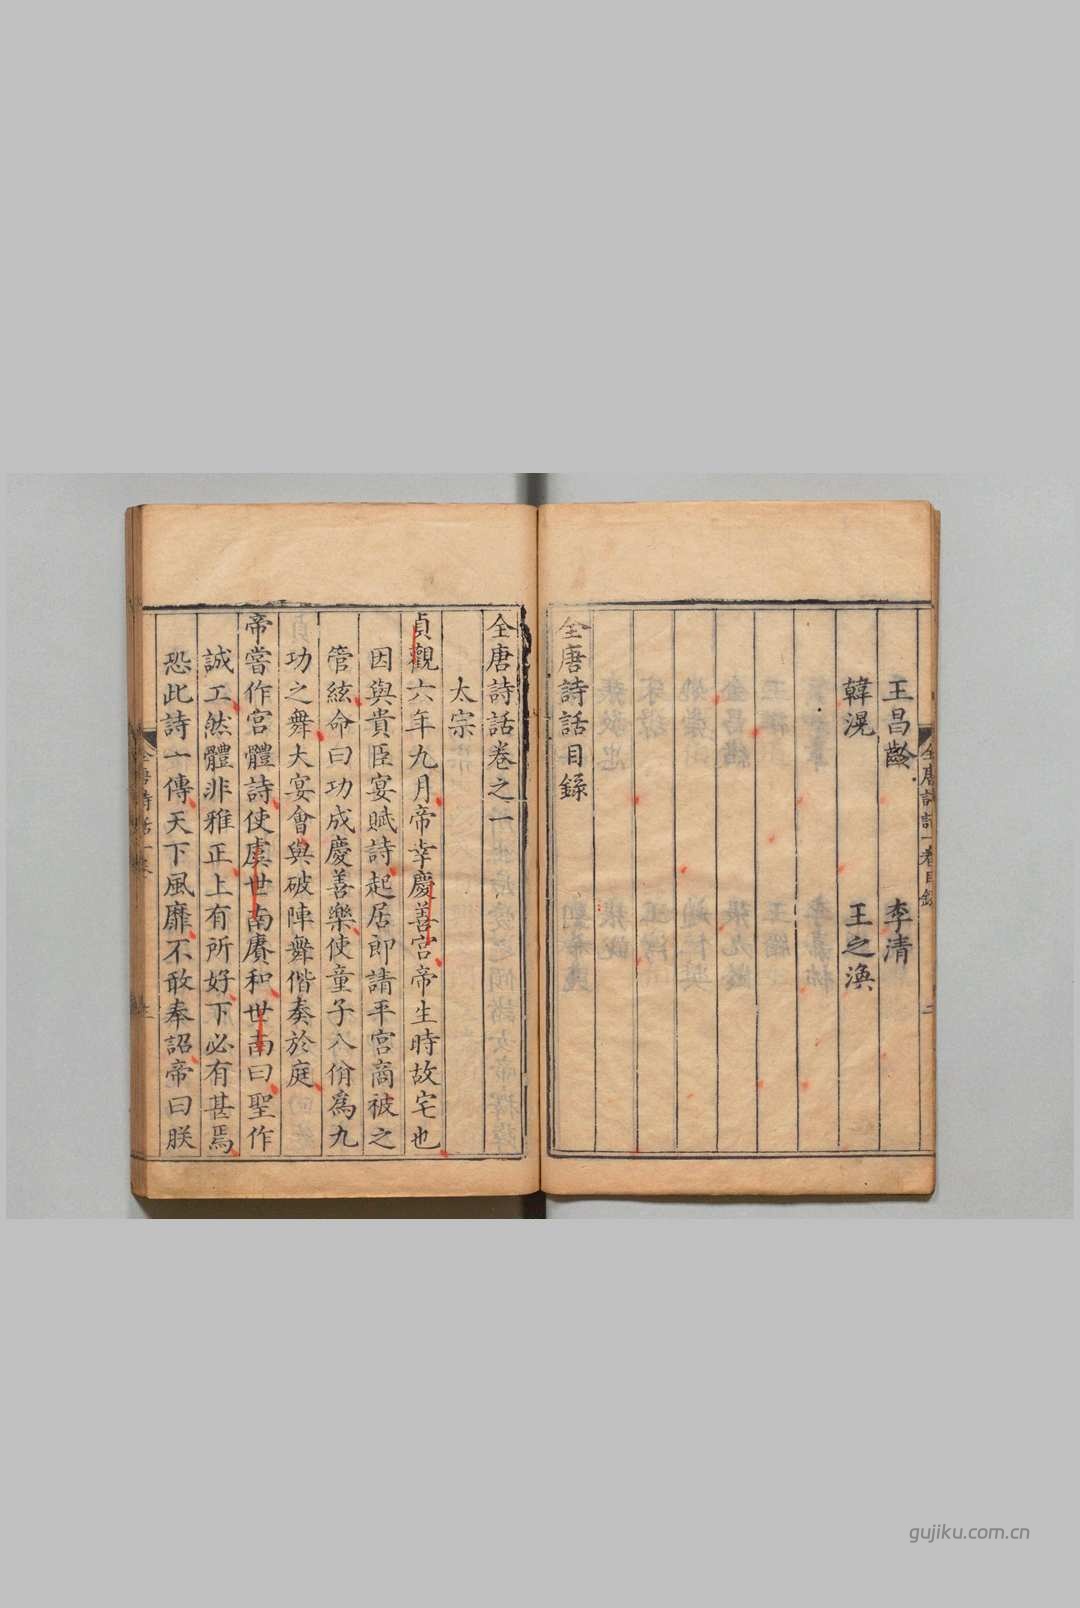 王昌齡 李清
韓滉 王之渙
全唐詩話目錄
全唐詩話一卷目錄
二
全唐詩話卷之一
太宗
貞觀六年九月帝幸慶善宮帝生時故宅也
因與貴臣宴賦詩起居郎請平宮商被之
管絃命曰功成慶善樂使童子八佾爲九
功之舞大宴會與破陣舞偕奏於庭
帝嘗作宮體詩使虞世南賡和世南曰聖作
誠工然體非雅正上有所好下必有甚焉
恐此詩一傳天下風靡不敢奉詔帝曰朕
全唐詩話一卷
gujiku.com.cn